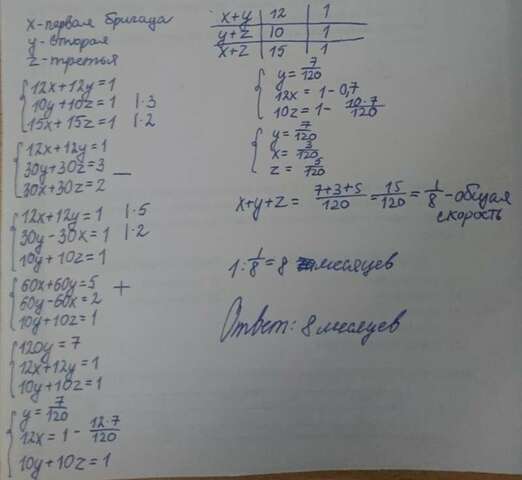 x-первая бригада
y-вторая
z-третья
{12x+12y=1
10y+10z=1 |·3
15x+15z=1 |·2
{12x+12y=1
30y+30z=3 —
30x+30z=2
{12x+12y=1 |·5
30y-30x=1 |·2
10y+10z=1
{60x+60y=5 +
60y-60x=2
10y+10z=1
{120y=7
12x+12y=1
10y+10z=1
{y=7/120
12x=1-12·7/120
10y+10z=1
x+y | 12 | 1
y+z | 10 | 1
x+z | 15 | 1
{y=7/120
12x=1-0,7
10z=1-10·7/120
{y=7/120
x=3/120
z=5/120
x+y+z=7+3+5/120=15/120=1/8-общая
скорость
1:1/8=8 месяцев
Ответ: 8 месяцев